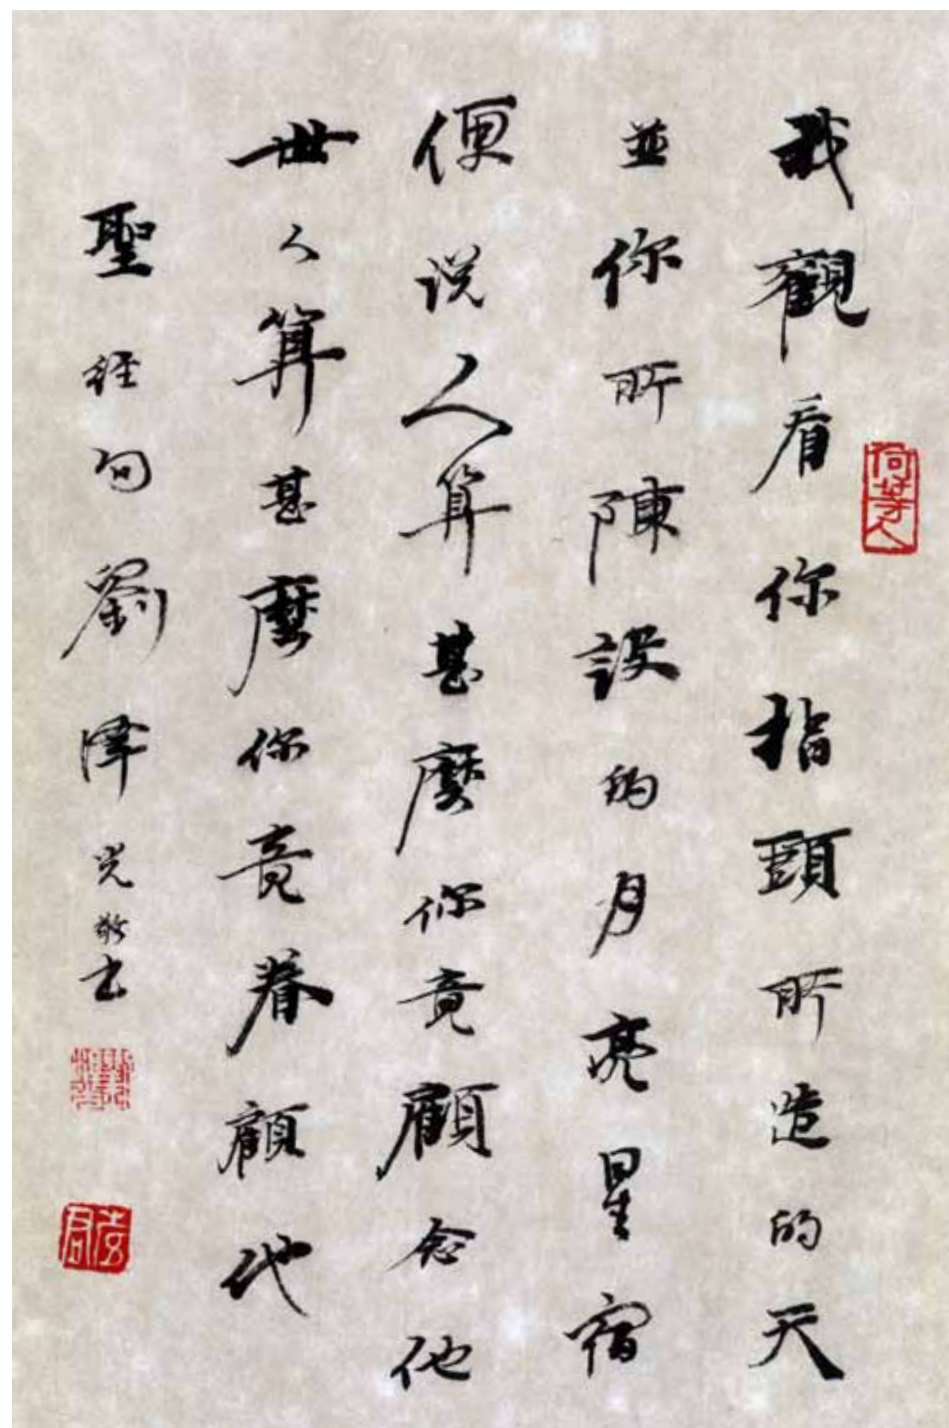 何等人
我觀看你指頭所造的天
並你所陳設的月亮星宿
便説人算甚麼你竟顧念他
世人算甚麼你竟眷顧他
聖經句劉澤光敬书